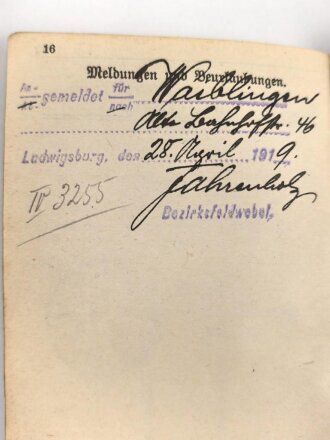 16
Meldungen und Beurlaubungen.
An-/Ab- gemeldet für/nach Waiblingen
Alte Bahnhofstr. 46
Ludwigsburg, den 28. April 1919.
Fahrenholz
Bezirksfeldwebel.
IV 3255